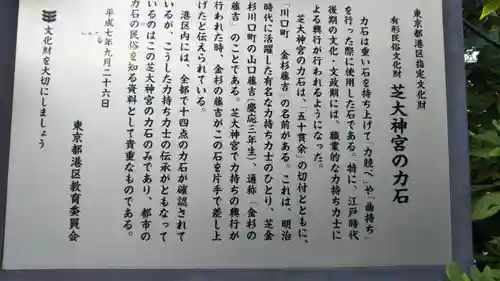 東京都港区指定文化財
有形民俗文化財 芝大神宮の力石
力石は重い石を持ち上げて「力競べ」や「曲持ち」
を行った際に使用した石である。特に、江戸時代
後期の文化・文政期には、職業的な力持ち力士に
よる興行が行われるようになった。
芝大神宮の力石は、「五十貫余」の切付とともに、
「川口町 金杉藤吉」の名前がある。これは、明治
時代に活躍した有名な力持ち力士のひとり、芝金
杉川口町の山口藤吉(慶応三年生)、通称「金杉の
藤吉」のことである。芝大神宮で力持ちの興行が
行われた時、金杉の藤吉がこの石を片手で差し上
げたと伝えられている。
港区内には、全部で十四点の力石が確認されて
いるが、こうした力持ち力士の伝承がともなって
いるのはこの芝大神宮の力石のみであり、都市の
力石の民俗を知る資料として貴重なものである。
平成七年九月二十六日
東京都港区教育委員会
文化財を大切にしましょう